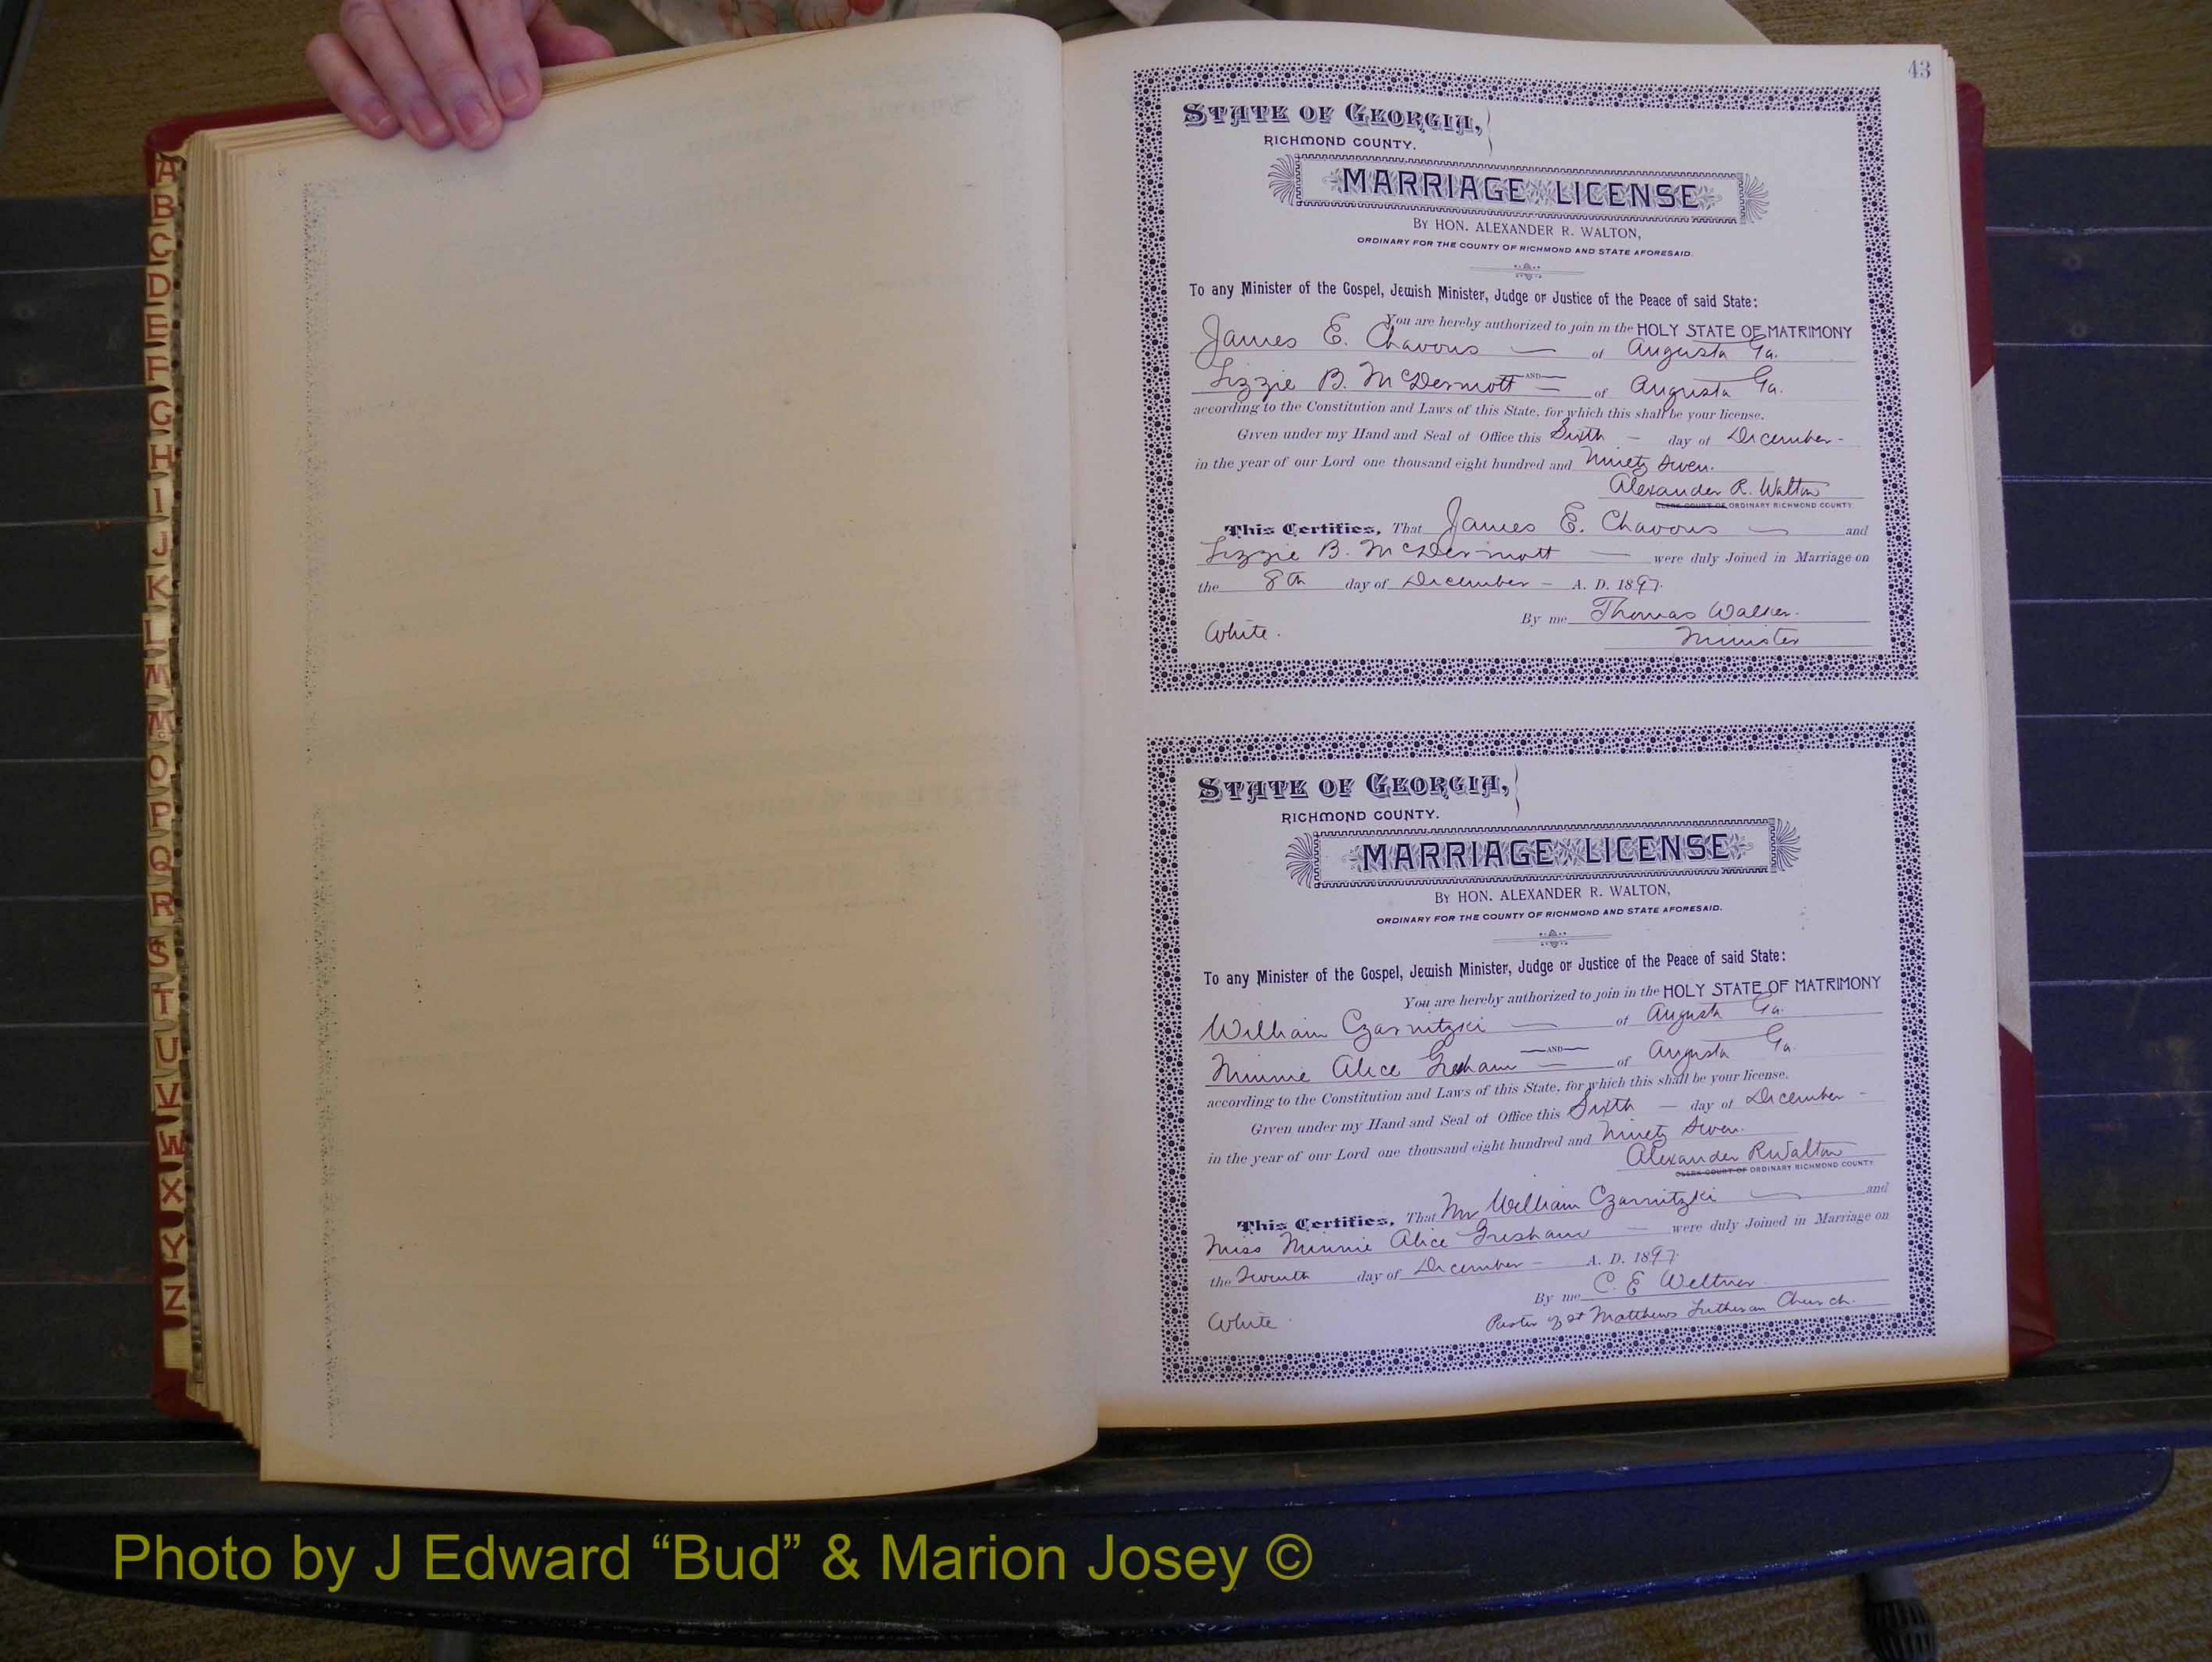 43
A
B
C
D
E
F
G
H
I
J
K
L
M
Mc
O
P
Q
R
S
T
U
V
W
X
Y
Z
STATE OF GEORGIA,
RICHMOND COUNTY.
MARRIAGE LICENSE
BY HON. ALEXANDER R. WALTON,
ORDINARY FOR THE COUNTY OF RICHMOND AND STATE AFORESAID.
To any Minister of the Gospel, Jewish Minister, Judge or Justice of the Peace of said State:
You are hereby authorized to join in the HOLY STATE OF MATRIMONY
James E. Chavous — of Augusta Ga.
—AND—
Lizzie B. McDermott — of Augusta Ga.
according to the Constitution and Laws of this State, for which this shall be your license.
Given under my Hand and Seal of Office this Sixth — day of December -
in the year of our Lord one thousand eight hundred and Ninety Seven.
Alexander R. Walton
CLERK COURT OF ORDINARY RICHMOND COUNTY
This Certifies, That James E. Chavous — and
Lizzie B. McDermott — were duly Joined in Marriage on
the 8th day of December — A. D. 1897.
By me Thomas Walker.
White. Minister
STATE OF GEORGIA,
RICHMOND COUNTY.
MARRIAGE LICENSE
BY HON. ALEXANDER R. WALTON,
ORDINARY FOR THE COUNTY OF RICHMOND AND STATE AFORESAID.
To any Minister of the Gospel, Jewish Minister, Judge or Justice of the Peace of said State:
You are hereby authorized to join in the HOLY STATE OF MATRIMONY
William Czarnitzki — of Augusta Ga.
—AND—
Minnie Alice Gresham — of Augusta Ga.
according to the Constitution and Laws of this State, for which this shall be your license.
Given under my Hand and Seal of Office this Sixth — day of December -
in the year of our Lord one thousand eight hundred and Ninety Seven.
Alexander R Walton
CLERK COURT OF ORDINARY RICHMOND COUNTY
This Certifies, That Mr William Czarnitzki — and
Miss Minnie Alice Gresham — were duly Joined in Marriage on
the Seventh day of December — A. D. 1897.
By me C. E Weltner
White. Pastor of St Matthews Lutheran Church.
Photo by J Edward “Bud” & Marion Josey ©